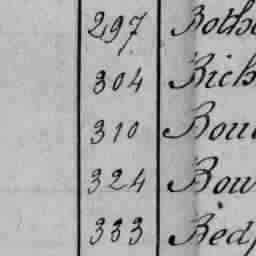 297 Both
304 Rich
310 Bou
324 Bow
333 Bed